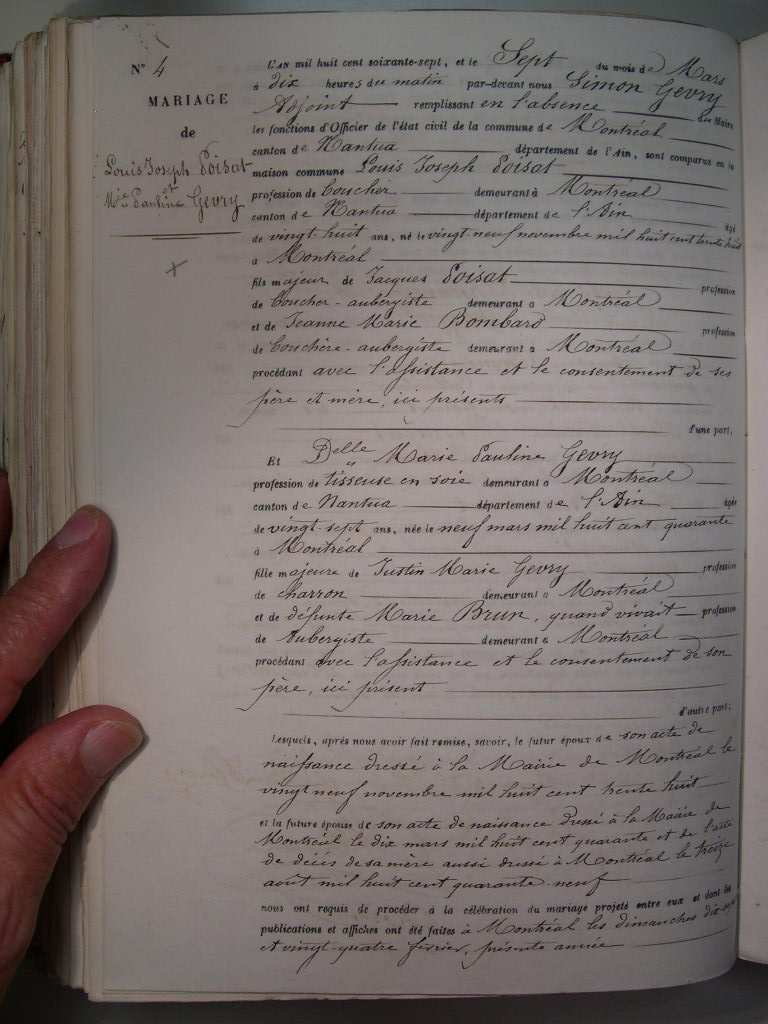 N° 4
MARIAGE
de
Louis Joseph Poisat
et
Mlle Pauline Gevry
L'AN mil huit cent soixante-sept, et le Sept du mois de Mars
à dix heures du matin par-devant nous Simon Gevry
Adjoint remplissant en l'absence du Maire
les fonctions d'Officier de l'état civil de la commune de Montréal
canton de Nantua département de l'Ain, sont comparus en la
maison commune Louis Joseph Poisat
profession de boucher demeurant à Montréal
canton de Nantua département de l'Ain âgé
de vingt-huit ans, né le vingt neuf novembre mil huit cent trente huit
à Montréal
fils majeur de Jacques Poisat profession
de boucher-aubergiste demeurant à Montréal
et de Jeanne Marie Bombard profession
de bouchère-aubergiste demeurant à Montréal
procédant avec l'assistance et le consentement de ses
père et mère, ici présents
d'une part,
Et Delle Marie Pauline Gevry
profession de tisseuse en soie demeurant à Montréal
canton de Nantua département de l'Ain âgée
de vingt-sept ans, née le neuf mars mil huit cent quarante
à Montréal
fille majeure de Justin Marie Gevry profession
de charron demeurant à Montréal
et de défunte Marie Brun, quand vivait profession
de Aubergiste demeurant à Montréal
procédant avec l'assistance et le consentement de son
père, ici présent
d'autre part;
Lesquels, après nous avoir fait remise, savoir, le futur époux de son acte de
naissance dressé à la Mairie de Montréal le
vingt neuf novembre mil huit cent trente huit
et la future épouse de son acte de naissance dressé à la Mairie de
Montréal le dix mars mil huit cent quarante et de l'acte
de décès de sa mère aussi dressé à Montréal le treize
août mil huit cent quarante-neuf
nous ont requis de procéder à la célébration du mariage projeté entre eux et dont les
publications et affiches ont été faites à Montréal les dimanches dix-sept
et vingt-quatre février, présente année